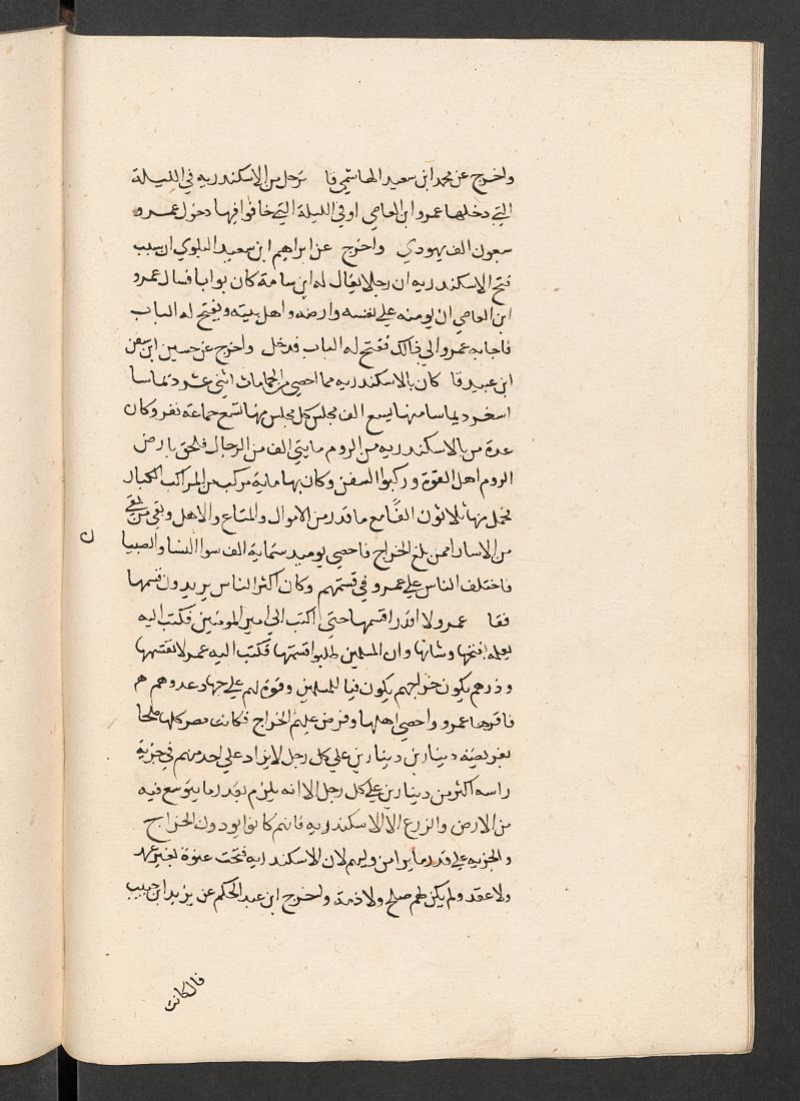 واخرج عن محمد ابن سعيد الهاشمي قا ترحل من الاسكندريه في الليلة
التي دخلها عمرو ابن العاصي او في الليلة التي خافوا فيها دخول عمرو
سبعون الف يهودي واخرج عن ابراهيم ابن سعيد البلوي ان سبب
فتح الاسكندريه ان رجلا يقال له ابن سامة كان بوابا فسال عمرو
ابن العاصي ان يومنه علي نفسه وارضه واهل بيته ويفتح له الباب
فاجابه عمرو الي ذالك ففتح له الباب فدخل واخرج عن حسين ابن سفن
ابن عبيد قا كان بالاسكندريه مما احصي من الحمامات اثني عشر ديماسا
اصغر ديماسا منها يسع الف مجلس كل مجلس منها تسع جماعة نفر وكان
عدة من بالاسكندريه من الروم مايتي الف من الرجال فلحق بارض
الروم اهل القوة وركبوا السفن وكان بها ماية مركب من المراكب الكبار
تحمل منها ثلاثون الفًا مع ما قدر من الاموال والمتاع والاهل وبقي من بقي
من الاسارا ممن بلغ الخراج فاحصي يوميد ستماية الف سوا النسا والصبيا
ن
فاختلف الناس علي عمرو في قسمتهم وكان اكثر الناس يريدون قسمها
فقا عمرو لا اقدر اقسمها حتي اكتب الي امير المومنين فكتب اليه
يعلمه بفتحها وشانها وان المسلمين طلبوا قسمتها فكتب اليه عمر لا تقسمها
وذرهم يكون خراجهم يكون فيا للمسلمين وقوة لهم علي جهاد عدوهم هم
فاقرها عمرو واحصي اهلها وفرض عليهم الخراج فكانت مصر كلها صلحا
بفريضة دينارين دينارين علي كل رجل لا يزاد علي احد منهم في جزية
راسه اكثر من دينارين علي كل رجل الا انه يلزم بقدر ما يتوسع فيه
من الارض والزرع الا الاسكندريه فانهم كانوا يودون الخراج
والجزيه علي قدر ما يرا من وليهم لان الاسكندريه فتحت عنوة بغير عهد
ولا عقد ولم يكن لهم صلح ولا ذمة واخرج ابن عبد الحكم عن يزيد ابن حبيب
قال كانت